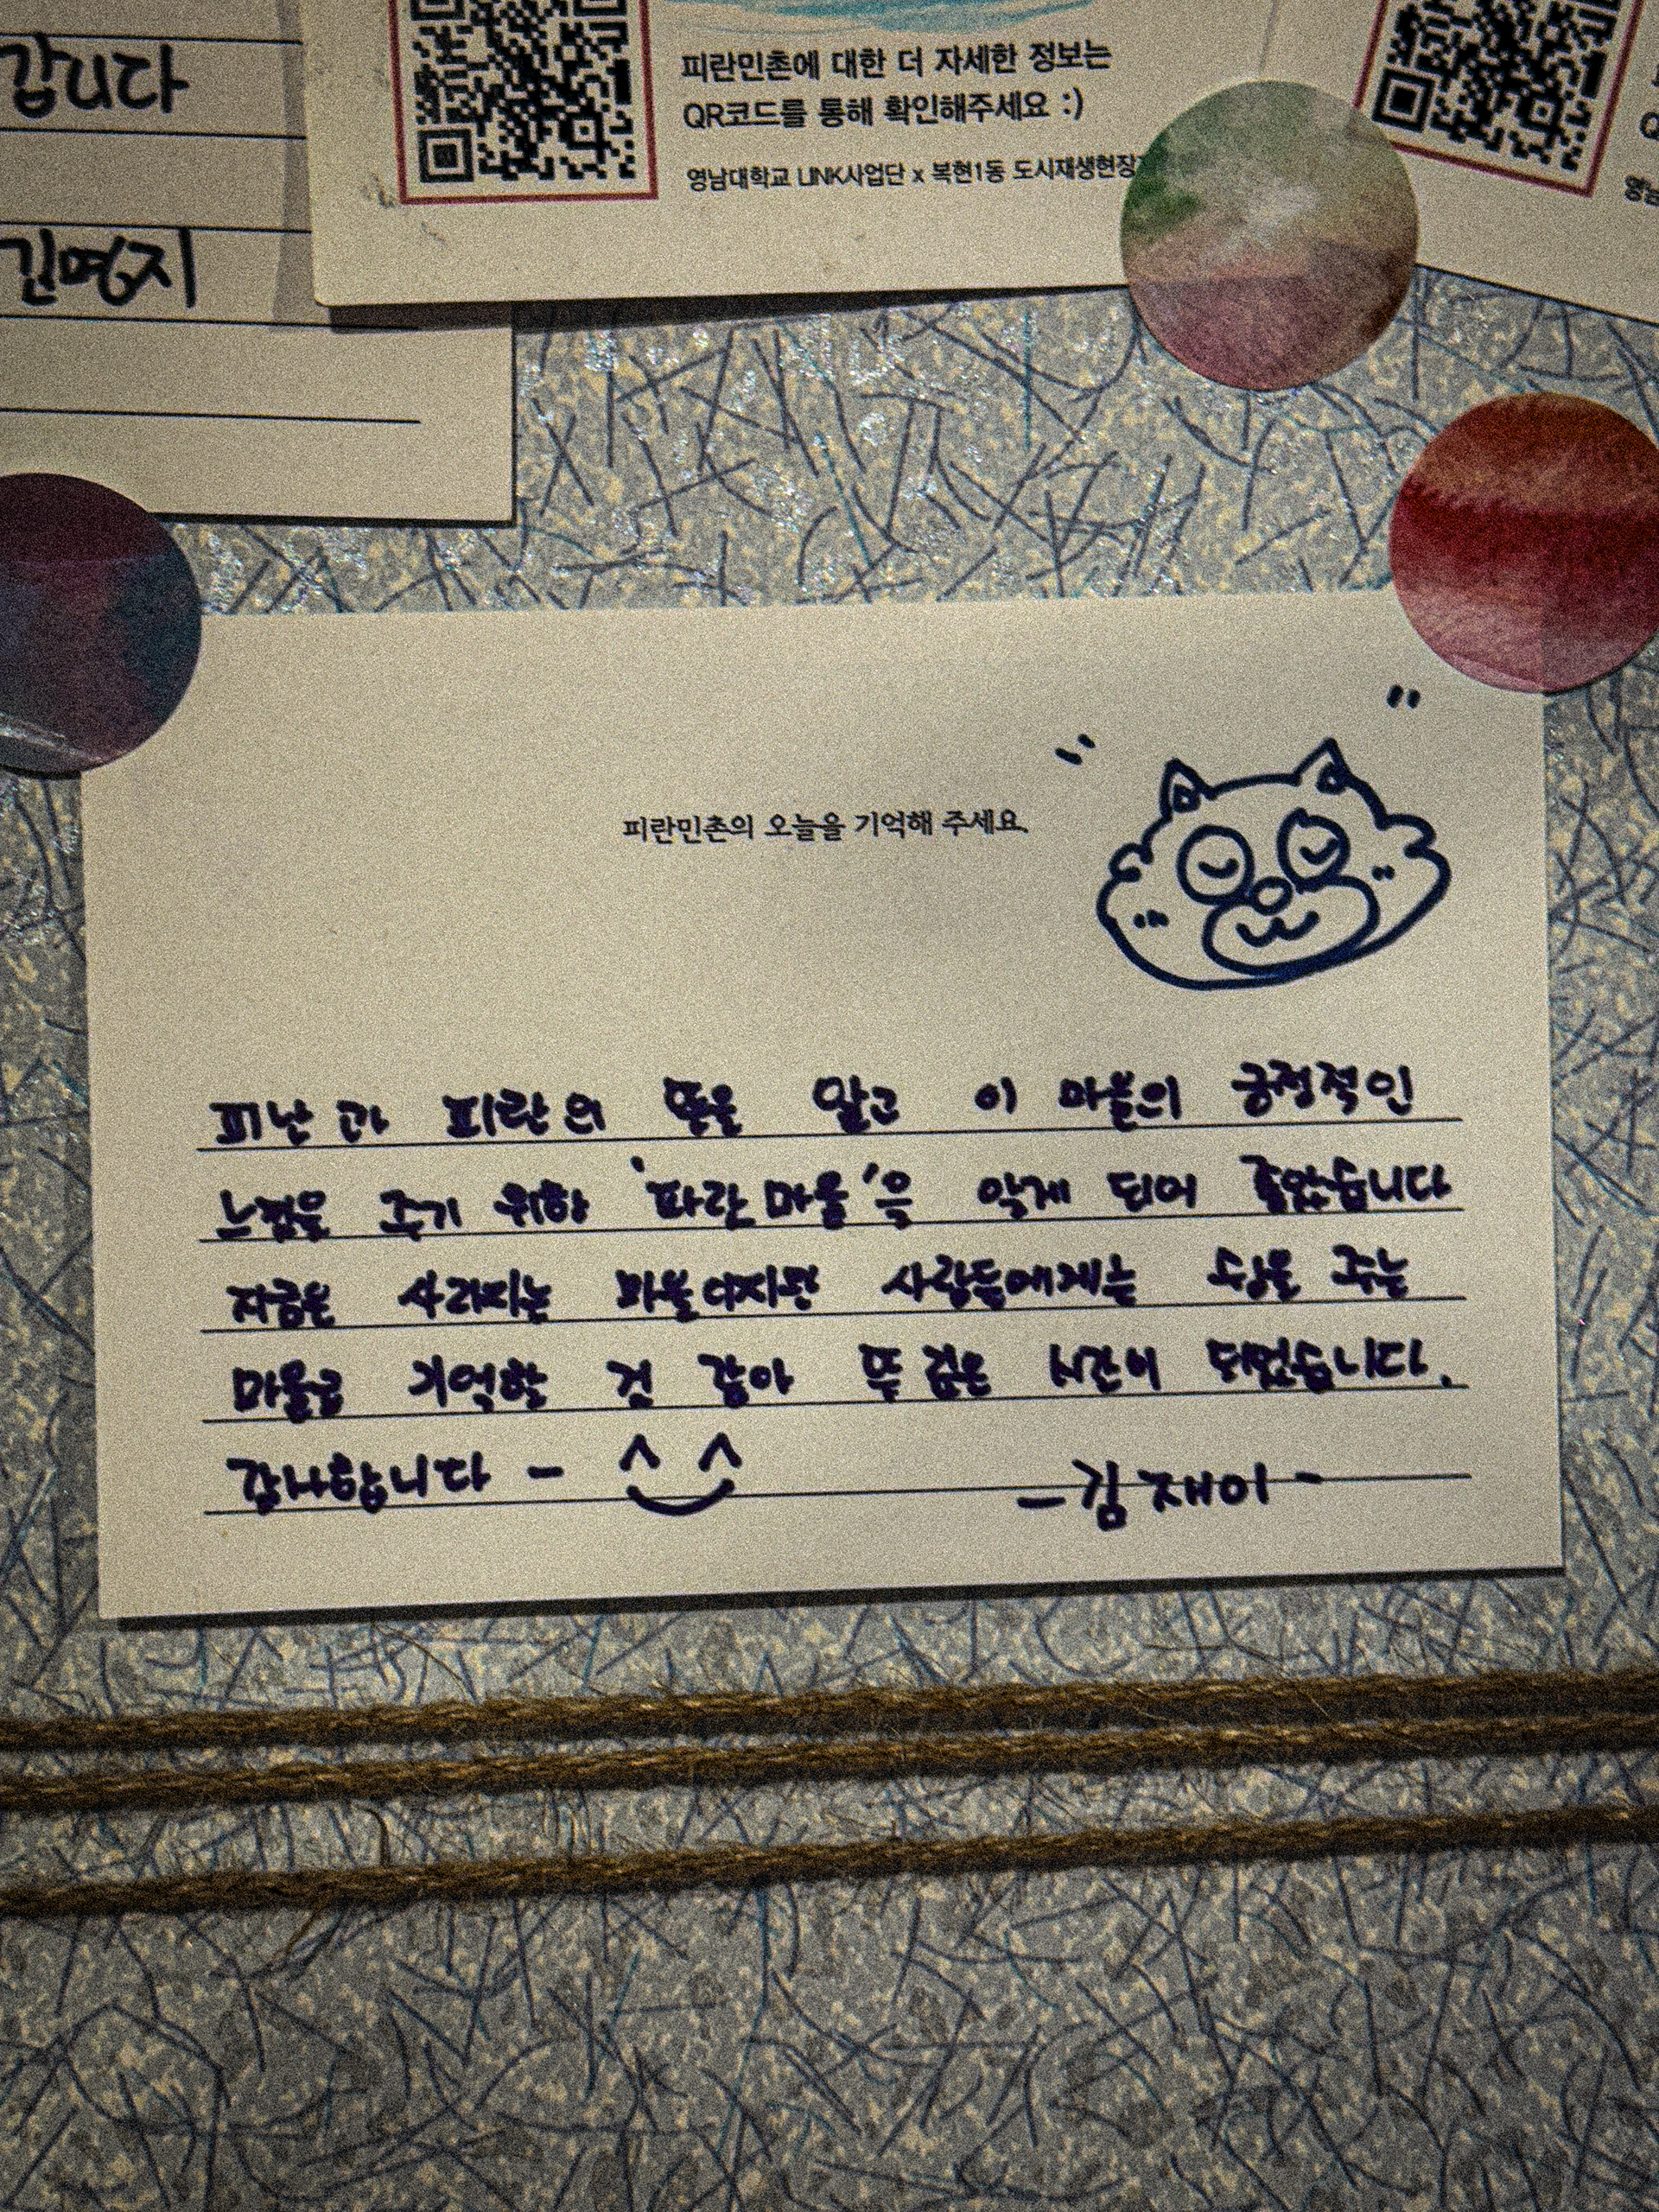 갑니다
김명지
피란민촌에 대한 더 자세한 정보는
QR코드를 통해 확인해주세요 :)
영남대학교 LINK사업단 x 복현1동 도시재생현장
영남
피란민촌의 오늘을 기억해 주세요.
피난과 피란의 뜻을 알고 이 마을의 긍정적인
느낌을 주기 위한 '파란마을'을 알게 되어 좋았습니다
지금은 사라지는 마을이지만 사람들에게는 쉼을 주는
마을로 기억할 것 같아 뜻깊은 시간이 되었습니다.
감사합니다 - ^ ^
- 김재이 -